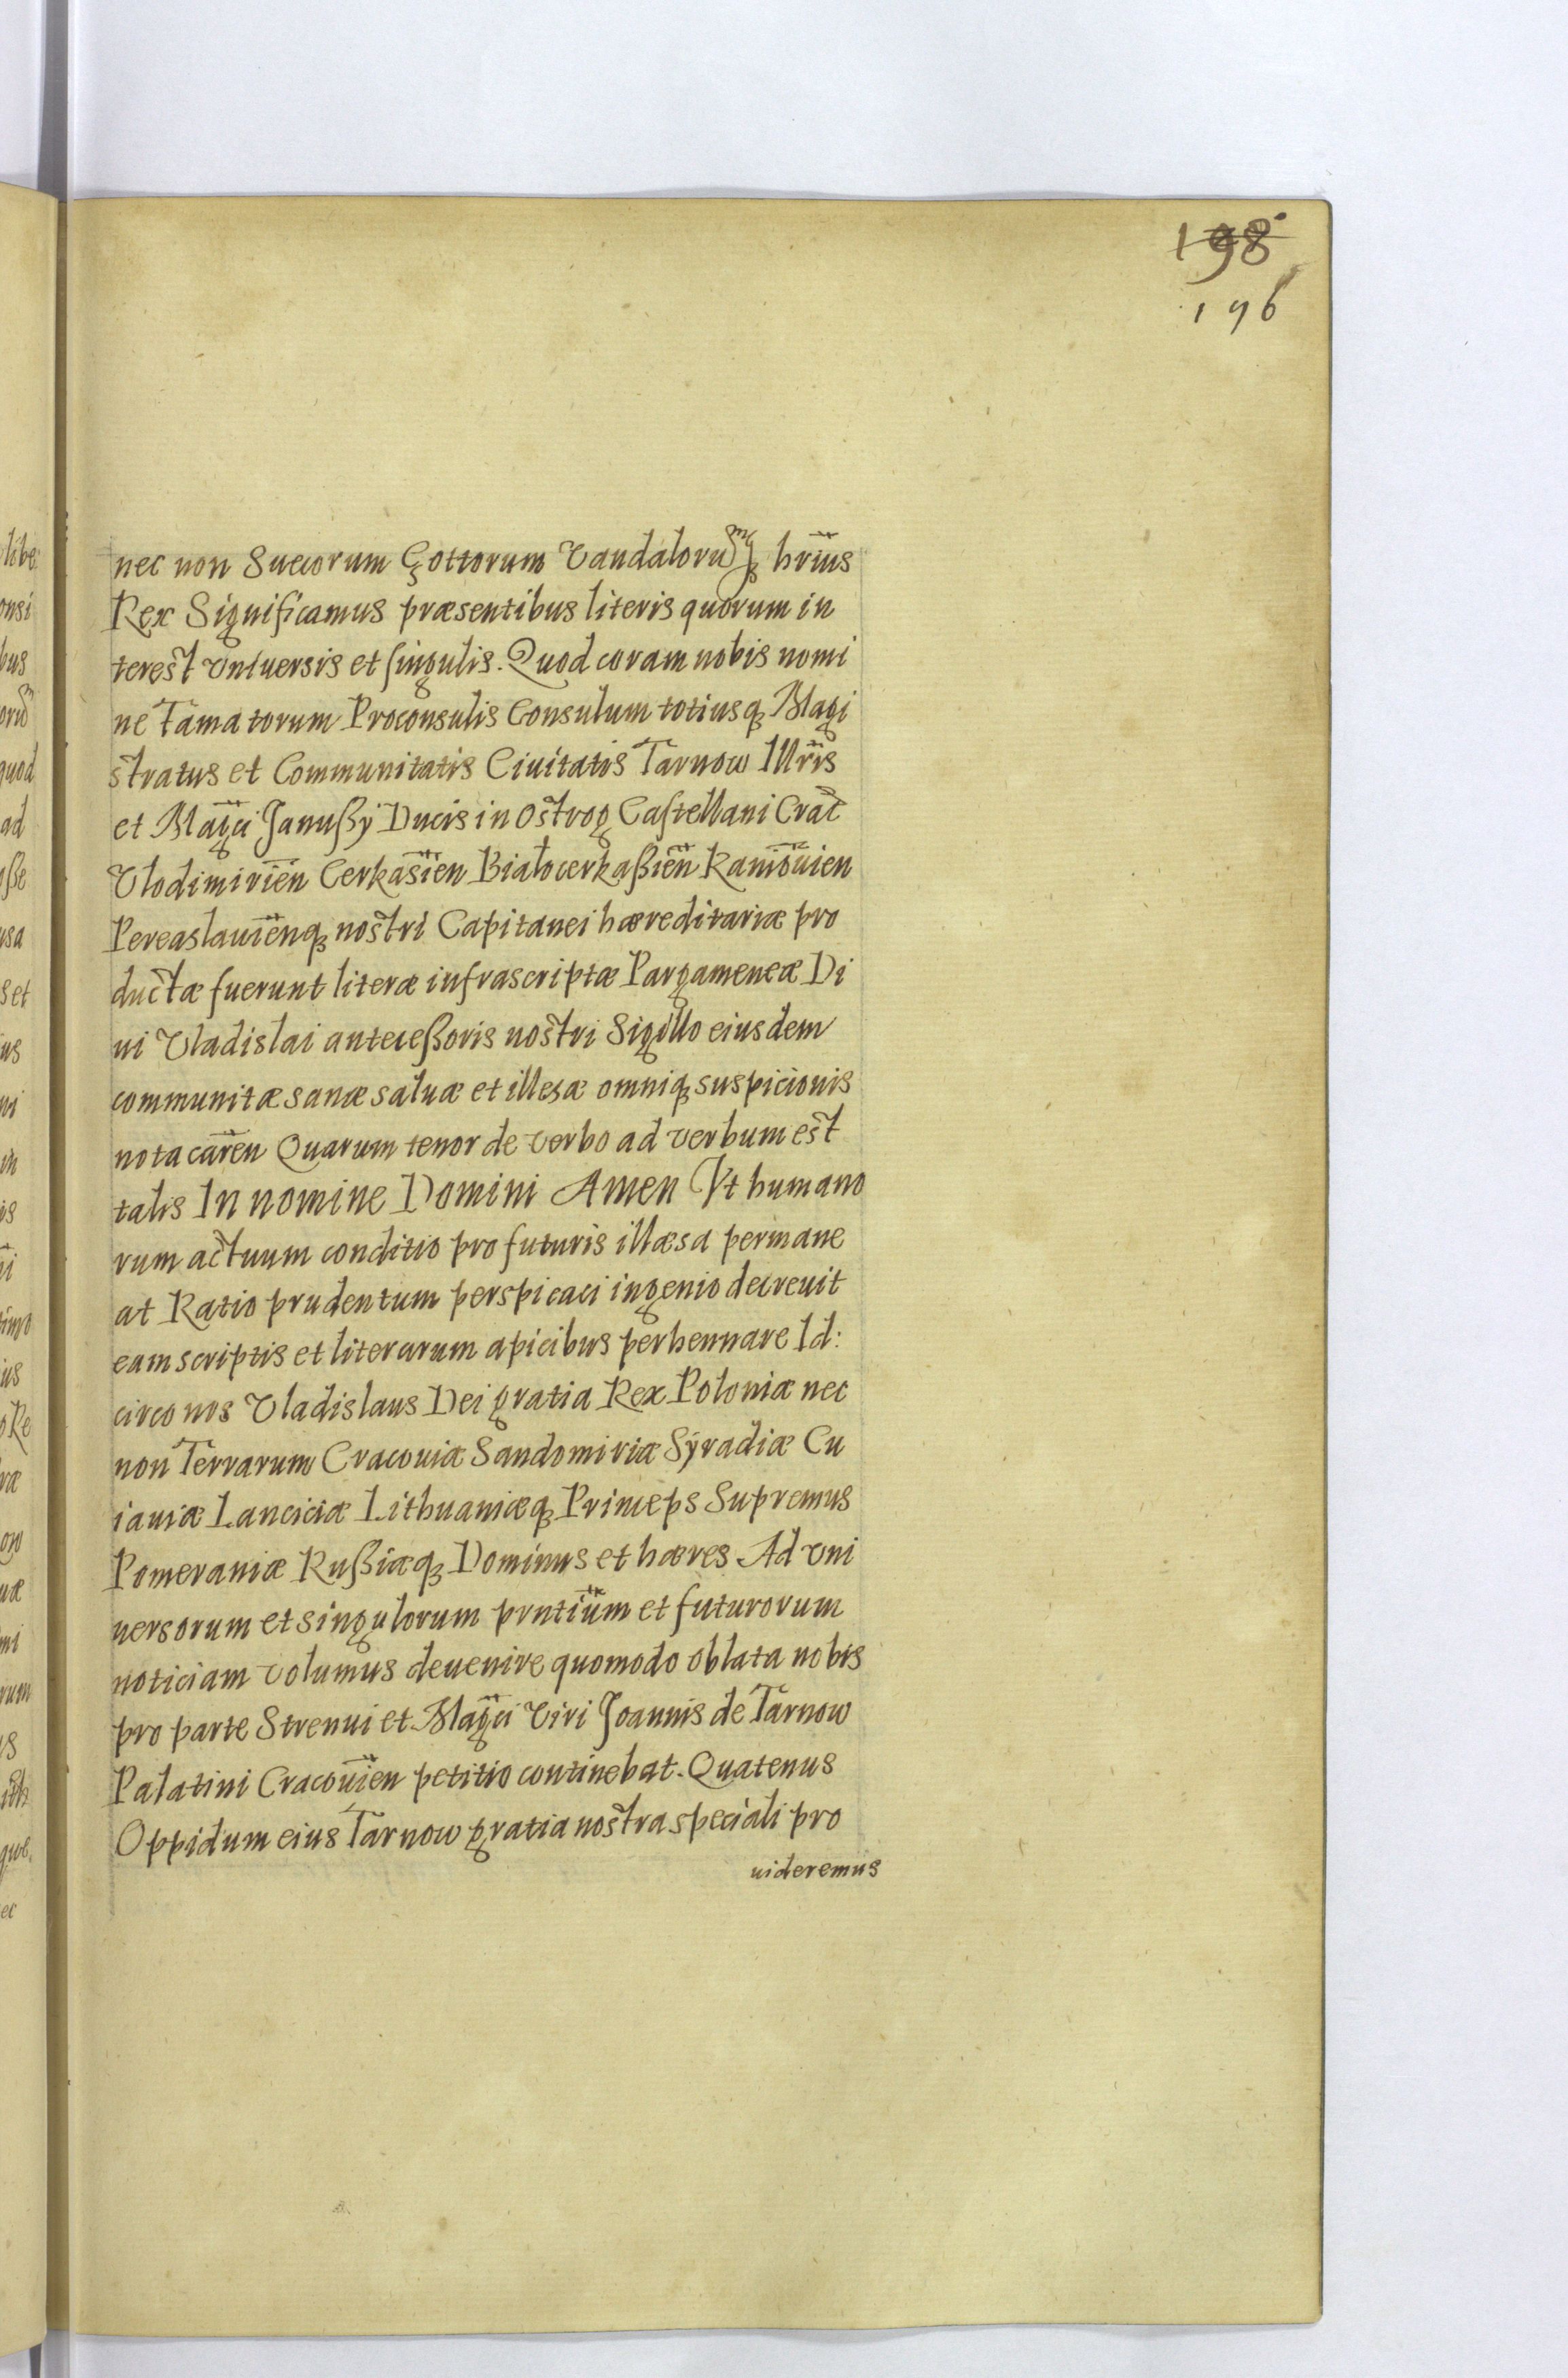 198
196
nec non Suecorum Gottorum Vandalorumq̃ hrius
Rex Significamus præsentibus literis quorum in
terest Vniuersis et singulis. Quod coram nobis nomi
ne Famatorum Proconsulis Consulum totiusq Magi
stratus et Communitatis Ciuitatis Tarnow Illris
et Magci Janußy Ducis in Ostrog Castellani Crac
Vlodimirien Cerkasien Bialocerkaßien Kaniouien
Pereaslauienq nostri Capitanei hæreditariæ pro
ductæ fuerunt literæ infrascriptæ Pargameneæ Di
ui Vladislai anteceßoris nostri Sigillo eiusdem
communitæ sanæ saluæ et illesæ omniq suspicionis
nota caren Quarum tenor de verbo ad verbum est
talis In nomine Domini Amen Vt humano
rum actuum conditio pro futuris illæsa permane
at Ratio prudentum perspicaci ingenio decreuit
eam scriptis et literarum apicibus perhennare Id:
circo nos Vladislaus Dei gratia Rex Poloniæ nec
non Terrarum Cracouiæ Sandomiriæ Syradiæ Cu
iauiæ Lanciciæ Lithuaniæq Princeps Supremus
Pomeraniæ Rußiæq Dominus et hæres Ad vni
uersorum et singulorum prntium et futurorum
noticiam volumus deuenire quomodo oblata nobis
pro parte Strenui et Magci Viri Joannis de Tarnow
Palatini Cracouien petitio continebat. Quatenus
Oppidum eius Tarnow gratia nostra speciali pro
uideremus